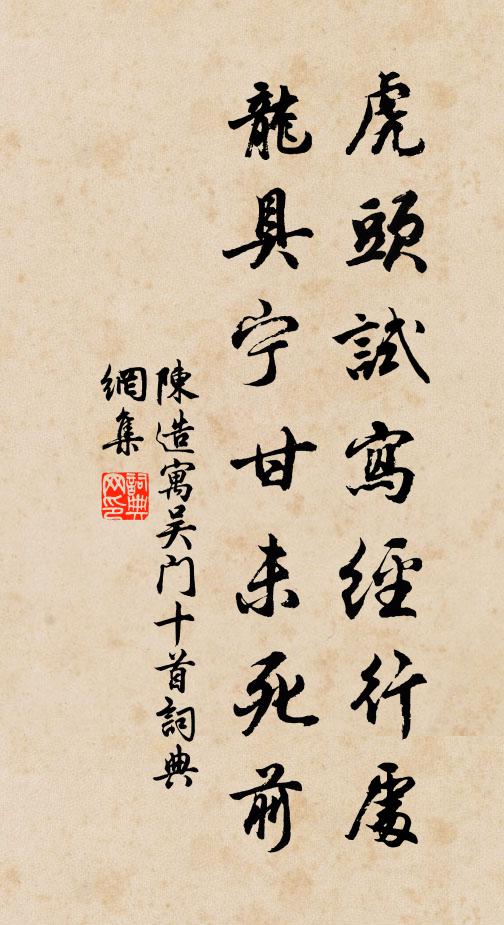 虎頭試寫經行處
龍具宁甘未死前
陳造寓吴门十首詞典
網集
詞典
网印